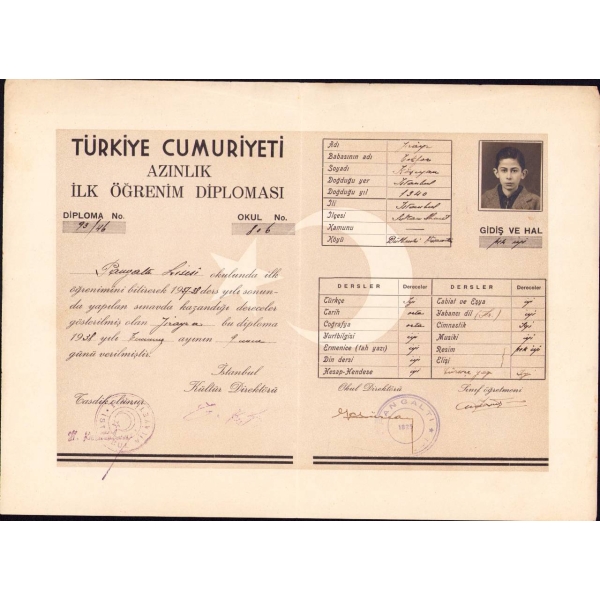 TÜRKİYE CUMURİYETİ
AZINLIK
İLK ÖĞRENİM DİPLOMASI
DİPLOMA No.
93/46
OKUL No.
806
Pangaltı Lisesi okulunda ilk
öğrenimini bitirerek 1937.38 ders yılı sonun-
da yapılan sınavda kazandığı dereceler
gösterilmiş olan bu diploma
1938 yılı ayının
günü verilmiştir.
İstanbul
Kültür Direktörü
Tasdik olunur
Adı
Babasının adı
Soyadı
Doğduğu yer İstanbul
Doğduğu yıl 1340
İli İstanbul
İlçesi
Kamunu —
Köyü
GİDİŞ VE HAL
pek iyi
DERSLER Dereceler DERSLER Dereceler
Türkçe iyi Tabiat ve Eşya iyi
Tarih orta Yabancı dil (Fr.) iyi
Coğrafya orta Cimnastik iyi
Yurtbilgisi iyi Musiki iyi
Ermenice (tah yazı) iyi Resim pek iyi
Din dersi iyi Elişi
Hesap-Hendese iyi
Okul Direktörü
Sınıf öğretmeni